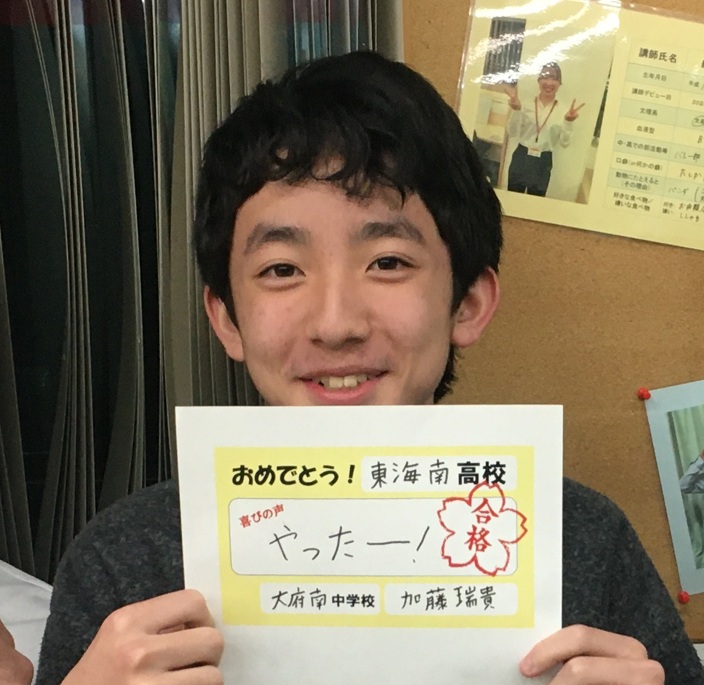 おめでとう！東海南高校
喜びの声
やったー！
合格
大府南中学校 加藤瑞貴
講師氏名
生年月日
講師デビュー日
文理系
血液型
中・高での部活動等
口癖(or何かの癖)
動物にたとえると
(その理由)
好きな食べ物／
嫌いな食べ物